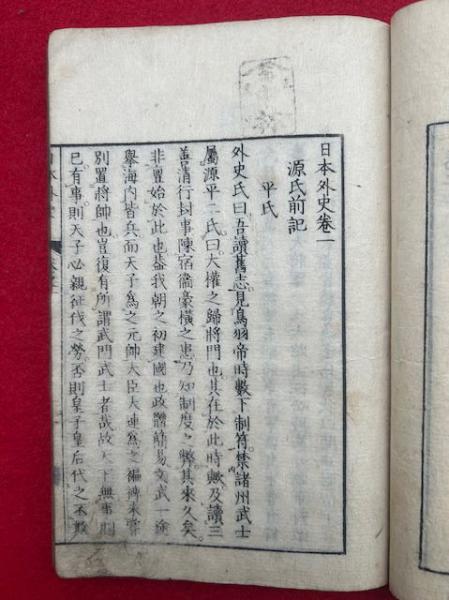 日本外史卷一
源氏前記
平氏
外史氏曰吾讀舊志見鳥羽帝時數下制符禁諸州武士
屬源平二氏曰大權之歸將門也其在於此時歟及讀三
善清行封事陳宿衞豪橫之患乃知制度之弊其來久矣
非啻始於此也蓋我朝之初建國也政體簡易文武一途
舉海内皆兵而天子爲之元帥大臣大連爲之褊裨未嘗
別置將帥也豈復有所謂武門武士者哉故天下無事則
已有事則天子必親征伐之勞否則皇子皇后代之不敢